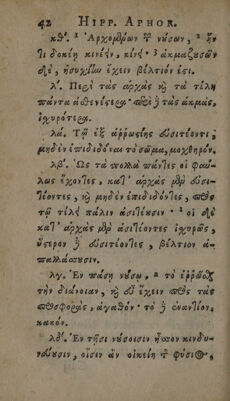 42 HIPP. APHOR.
κθʹ. Ἀρχομένων τ νύσων, ἤν
τι δοκέῃ κινέειν, κίνει· ἀκμαζυσῶν
δὲ, ἡσυχίην ἔχειν βέλτιόν ἐςι.
λʹ. Περὶ τὰς ἀρχὰς κỳ τὰ τέλη
πάντα ἀσθενέςερα· περὶ δὲ τὰς ἀκμὰς,
ἰχυρότερα.
λαʹ. Τῷ ἐξ ἀῤῥωςίης εὐσιτέοντι,
μηδὲν ἐπιδιδόναι τὸ σῶμα, μοχθηρόν.
λβʹ. Ὡς τὰ πολλὰ πάντες οἱ φαύ-
λως ἔχοντες, κατ' ἀρχὰς μὲν εὐσι-
τέοντες, κỳ μηδὲν ἐπιδιδόντες, πρὸς
τῷ τέλει πάλιν ἀσιτέυσιν· οἱ δὲ
κατ' ἀρχὰς μὲν ἀσιτέοντες ἰχυρῶς,
ὕςερον δὲ εὐσιτέοντες, βέλτιον ἀ-
παλλάσσυσιν.
λγʹ. Ἐν πάσῃ νύσῳ, τὸ ἐῤῥῶσθαι
τὴν διάνοιαν, κỳ εὖ ἔχειν πρὸς τὰς
προσφορὰς, ἀγαθόν· τὸ δὲ ἐναντίον,
κακόν.
λδʹ. Ἐν τῇσι νύσοισιν ἧττον κινδυ-
νεύυσιν, οἷσιν ἂν οἰκείη τ φύσιος,